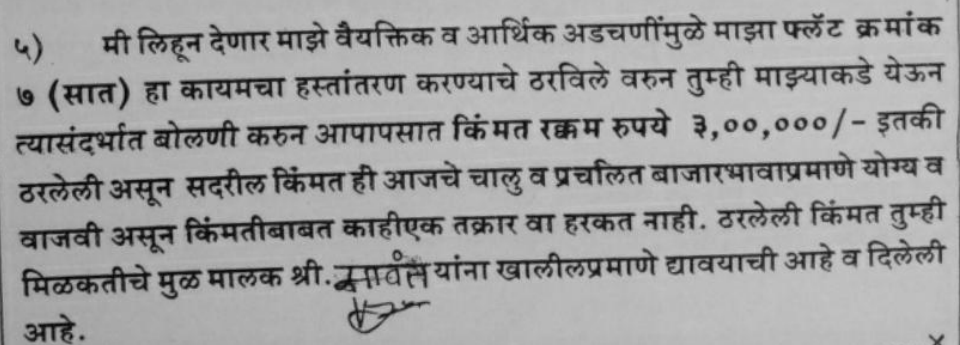 ५) मी लिहून देणार माझे वैयक्तिक व आर्थिक अडचणींमुळे माझा फ्लॅट क्रमांक
७ (सात) हा कायमचा हस्तांतरण करण्याचे ठरविले वरुन तुम्ही माझ्याकडे येऊन
त्यासंदर्भात बोलणी करुन आपापसात किंमत रक्कम रुपये ३,००,०००/- इतकी
ठरलेली असून सदरील किंमत ही आजचे चालु व प्रचलित बाजारभावाप्रमाणे योग्य व
वाजवी असून किंमतीबाबत काहीएक तक्रार वा हरकत नाही. ठरलेली किंमत तुम्ही
मिळकतीचे मुळ मालक श्री. सावंत यांना खालीलप्रमाणे द्यावयाची आहे व दिलेली
आहे.